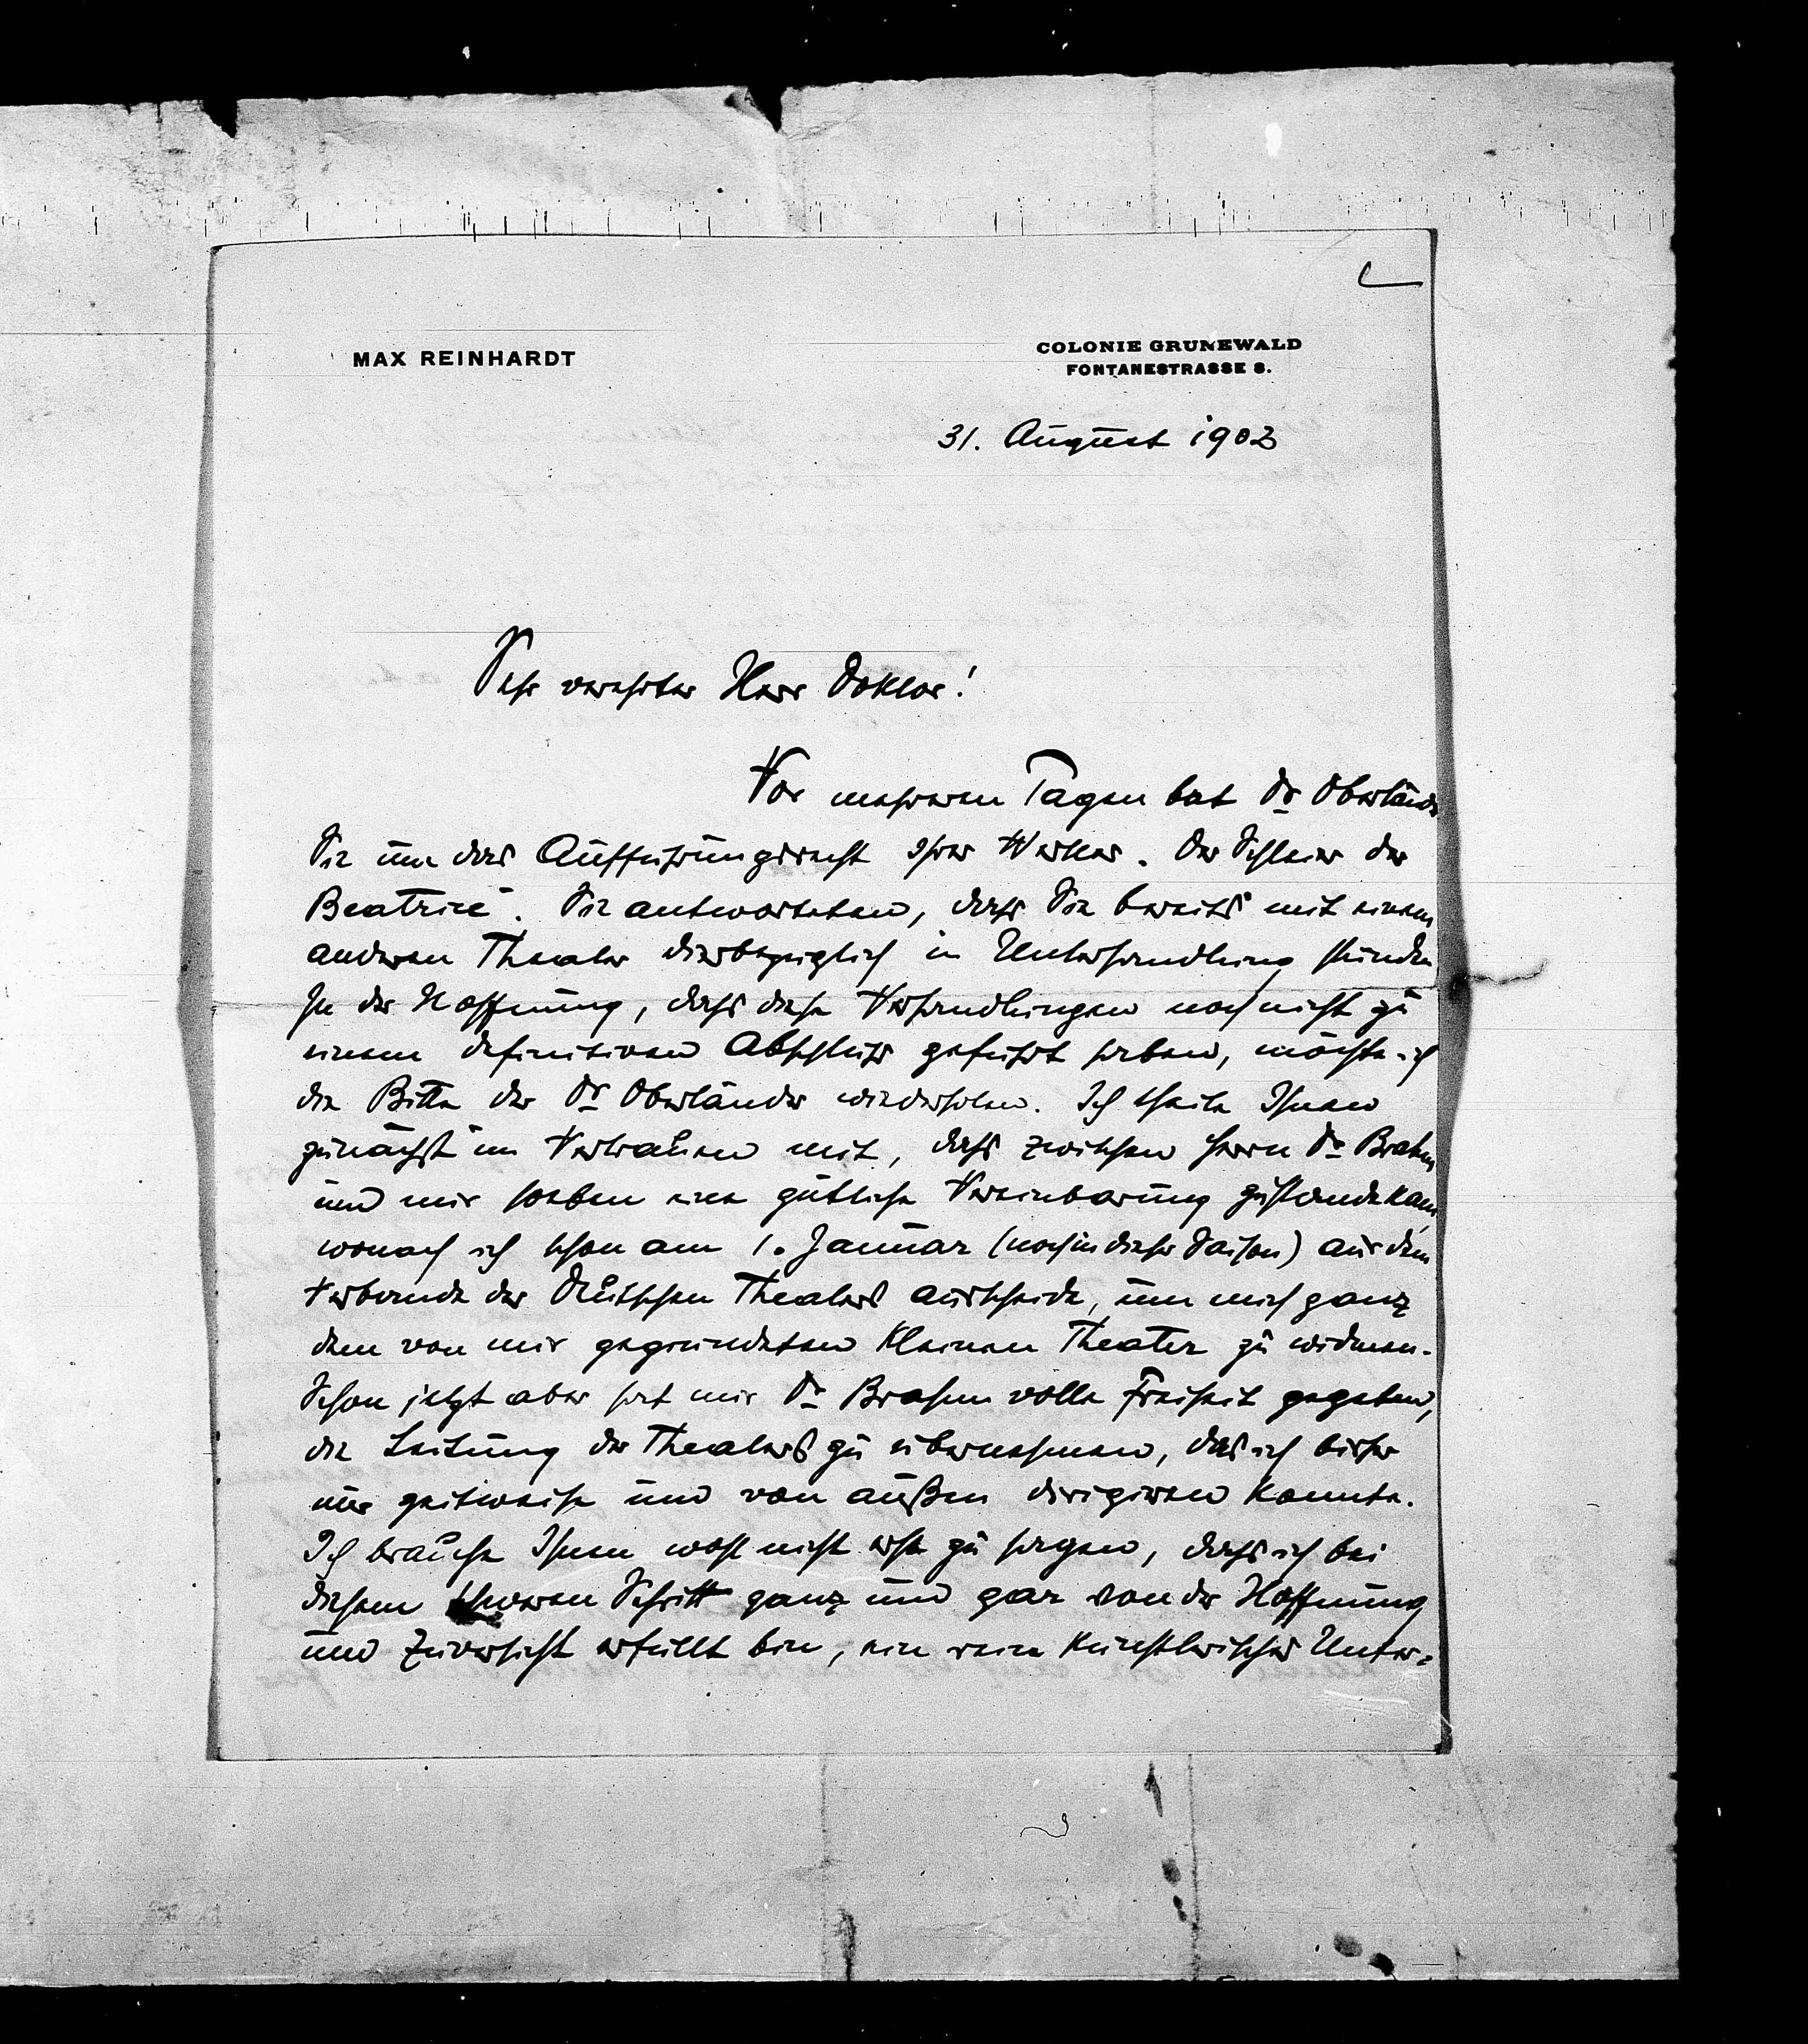 MAX REINHARDT
COLONIE GRUNEWALD
FONTANESTRASSE 8.
31. August 1902
Sehr verehrter Herr Doktor!
Vor mehreren Tagen bat Dr Oberländer
Sie um das Aufführungsrecht Ihres Werkes. Der Schleier der
Beatrice". Sie antworteten, dass Sie bereits mit einem
anderen Theater diesbezüglich in Unterhandlung stünden
In der Hoffnung, dass diese Verhandlungen noch nicht zu
einem definitiven Abschluss geführt haben, möchte ich
die Bitte des Dr Oberländer wiederholen. Ich theile Ihnen
zunächst im Vertrauen mit, dass zwischen Herrn Dr Brahm
und mir soeben eine gütliche Vereinbarung zustandekam,
wonach ich schon am 1. Januar (noch in dieser Saison) aus dem
Verbande des Deutschen Theaters ausscheide, um mich ganz
dem von mir gegründeten Kleinen Theater zu widmen.
Schon jetzt aber hat mir Dr Brahm volle Freiheit gegeben,
die Leitung des Theaters zu übernehmen, das ich bisher
nur zeitweise und von außen dirigiren konnte.
Ich brauche Ihnen wohl nicht erst zu sagen, dass ich bei
diesem schweren Schritt ganz und gar von der Hoffnung
und Zuversicht erfüllt bin, ein rein künstlerisches Unter-